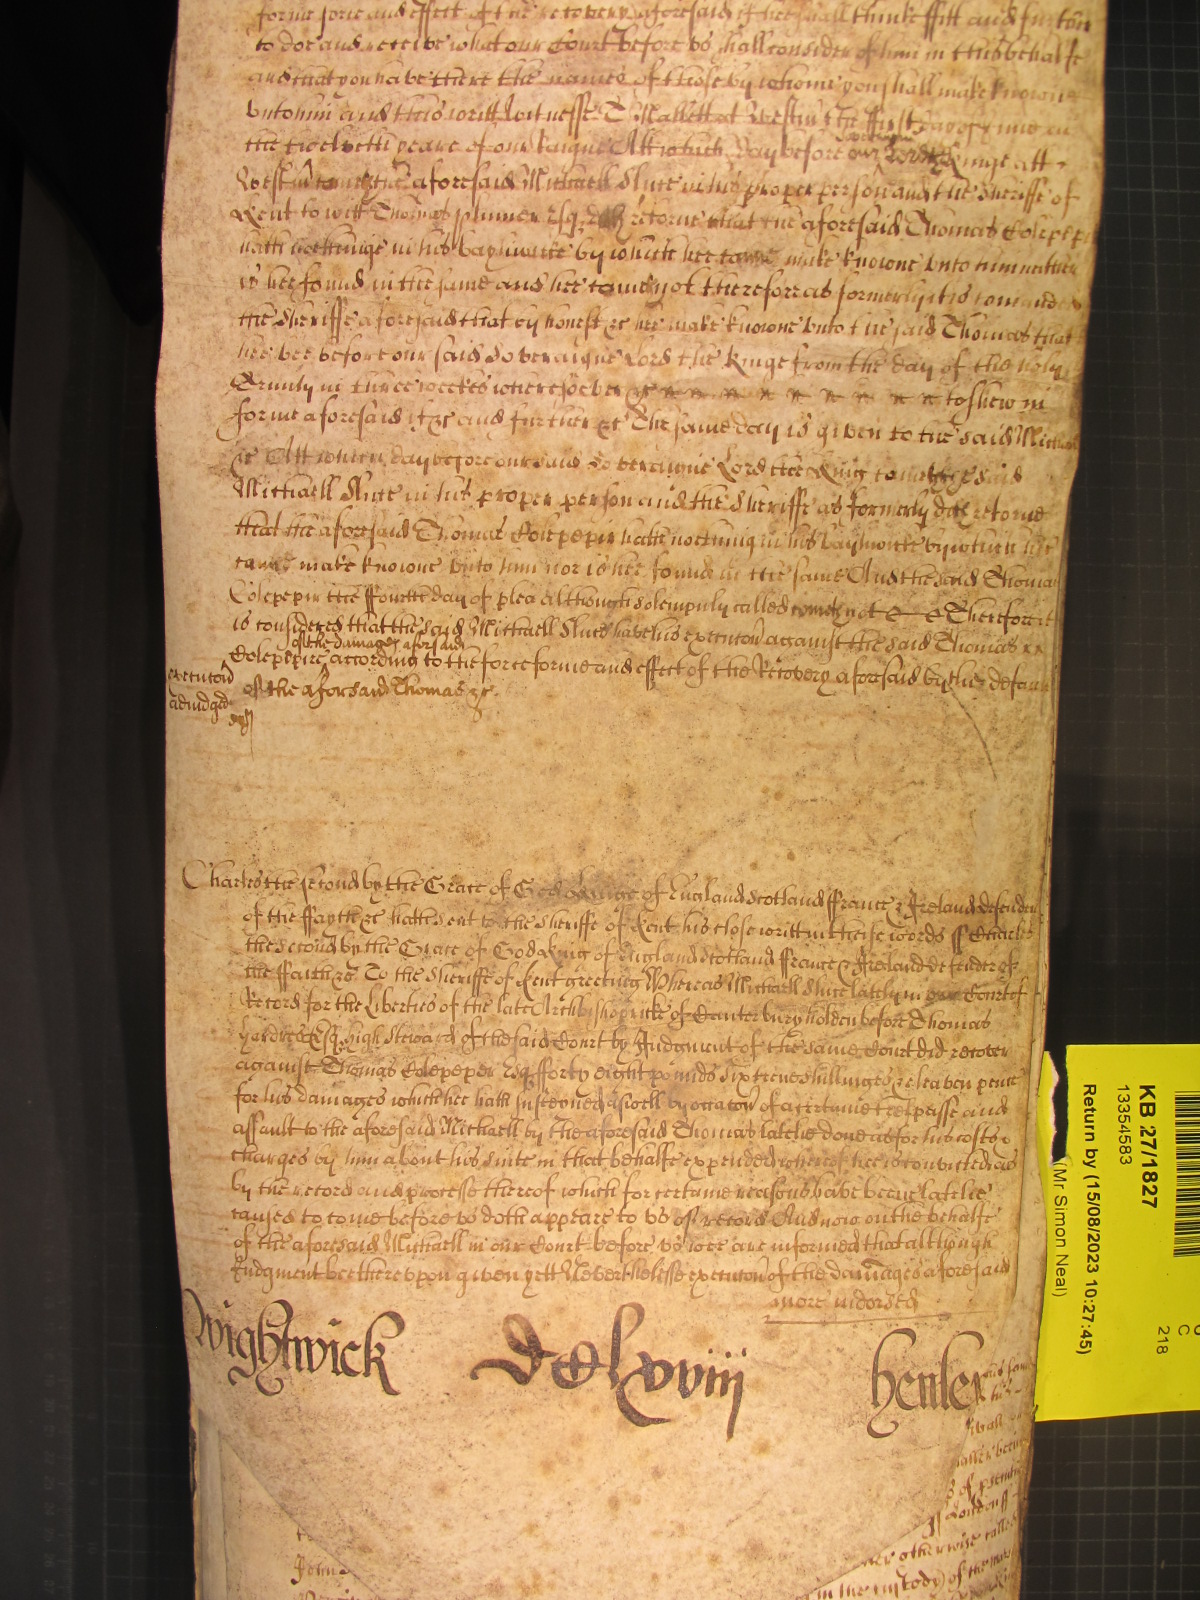 forme force and effect of the recovery aforesaid if hee shall thinke ffitt and further
to doe and receive what our Court before vs shall consider of him in this behalfe
and that you have there the names of those by whome you shall make knowne
vnto him and this writt Witnesse T Mallett at Westm the ffirst day of June in
the twelveth yeare of our Raigne Att which day before our Lord the Kinge att
Westm came the aforesaid Michaell Slute in his proper person and the Sheriffe of
Kent to witt Thomas Plumer Esq doth retorne that the aforesaid Thomas Colepepir
hath nothinge in his baylywicke by which hee make knowne vnto him neither
is hee found in the same and hee cometh not therefore as formerly it is comanded
the Sheriffe aforesaid that by honest &c hee make knowne vnto the said Thomas that
hee bee before our said Soveraigne Lord the Kinge from the day of the holy
Trinity in three weekes wheresoever &c to shew in
forme aforesaid if &c and further &c The same day is given to the said Michaell
&c Att which day before our said Soveraigne Lord the King cometh the said
Michaell Slute in his proper person and the Sheriffe as formerly doth retorne
that the aforesaid Thomas Colepepir hath nothing in his baylywicke by which hee
make knowne vnto him nor is hee found in the same And the said Thomas
Colepepir the ffourth day of plea although solempnly called cometh not Therefore it
is considered that the said Michaell Slute have his execucon against the said Thomas
of the damages aforesaid
Colepepir according to the force forme and effect of the Recovery aforesaid by the default
of the aforesaid Thomas &c
execucon
adiudged
Charles the second by the Grace of God Kinge of England Scotland ffrance & Ireland defender
of the ffayth &c hath sent to the Sheriffe of Kent his close writt in these words ss Charles
the second by the Grace of God King of England Scotland ffrance & Ireland defender of
the ffaith &c To the Sheriffe of Kent greeting Whereas Michaell Slute lately in our Court of
Record for the Liberties of the late Archbishopricke of Canterbury holden before Thomas
Hardres Esq high Steward of the said Court by Judgment of the same Court did recover
against Thomas Colepeper Esq fforty eight pounds sixteene shillinges & eleaven pence
for his damages which hee hath susteyned aswell by occacon of a certaine trespasse and
assault to the aforesaid Michaell by the aforesaid Thomas latelie done as for his costs &
charges by him about his suite in that behalfe expended whereof hee is convicted as
by the record and processe thereof which for certaine reasons have beene latelie
caused to come before vs doth appeare to vs of record And now on the behalfe
of the aforesaid Michaell in our Court before vs wee are informed that although
Judgment bee therevpon given yett Neverthelesse execucon of the damages aforesaid
more indorsed
Wightwick DClxviij Henley
KB 27/1827
13354583
Return by (15/08/2023 10:27:45)
(Mr Simon Neal)
C
218
of the
otherwise called
in the custody of the